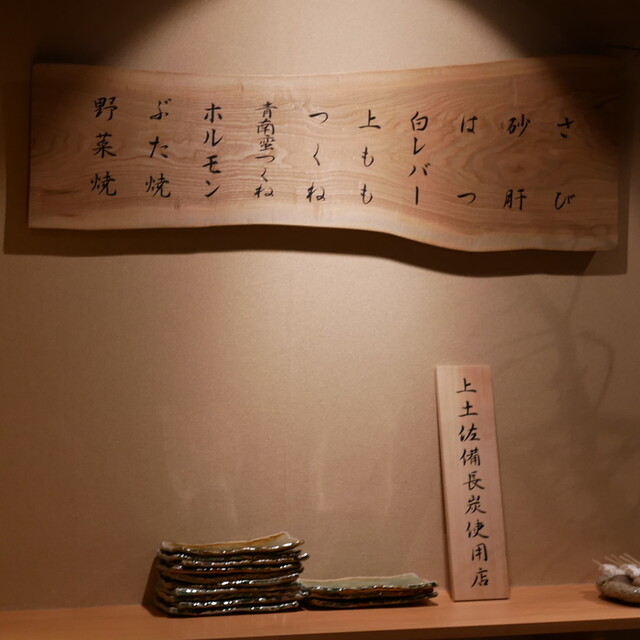 さび
砂肝
はつ
白レバー
上もも
つくね
青南蛮つくね
ホルモン
ぶた焼
野菜焼
上土佐備長炭使用店